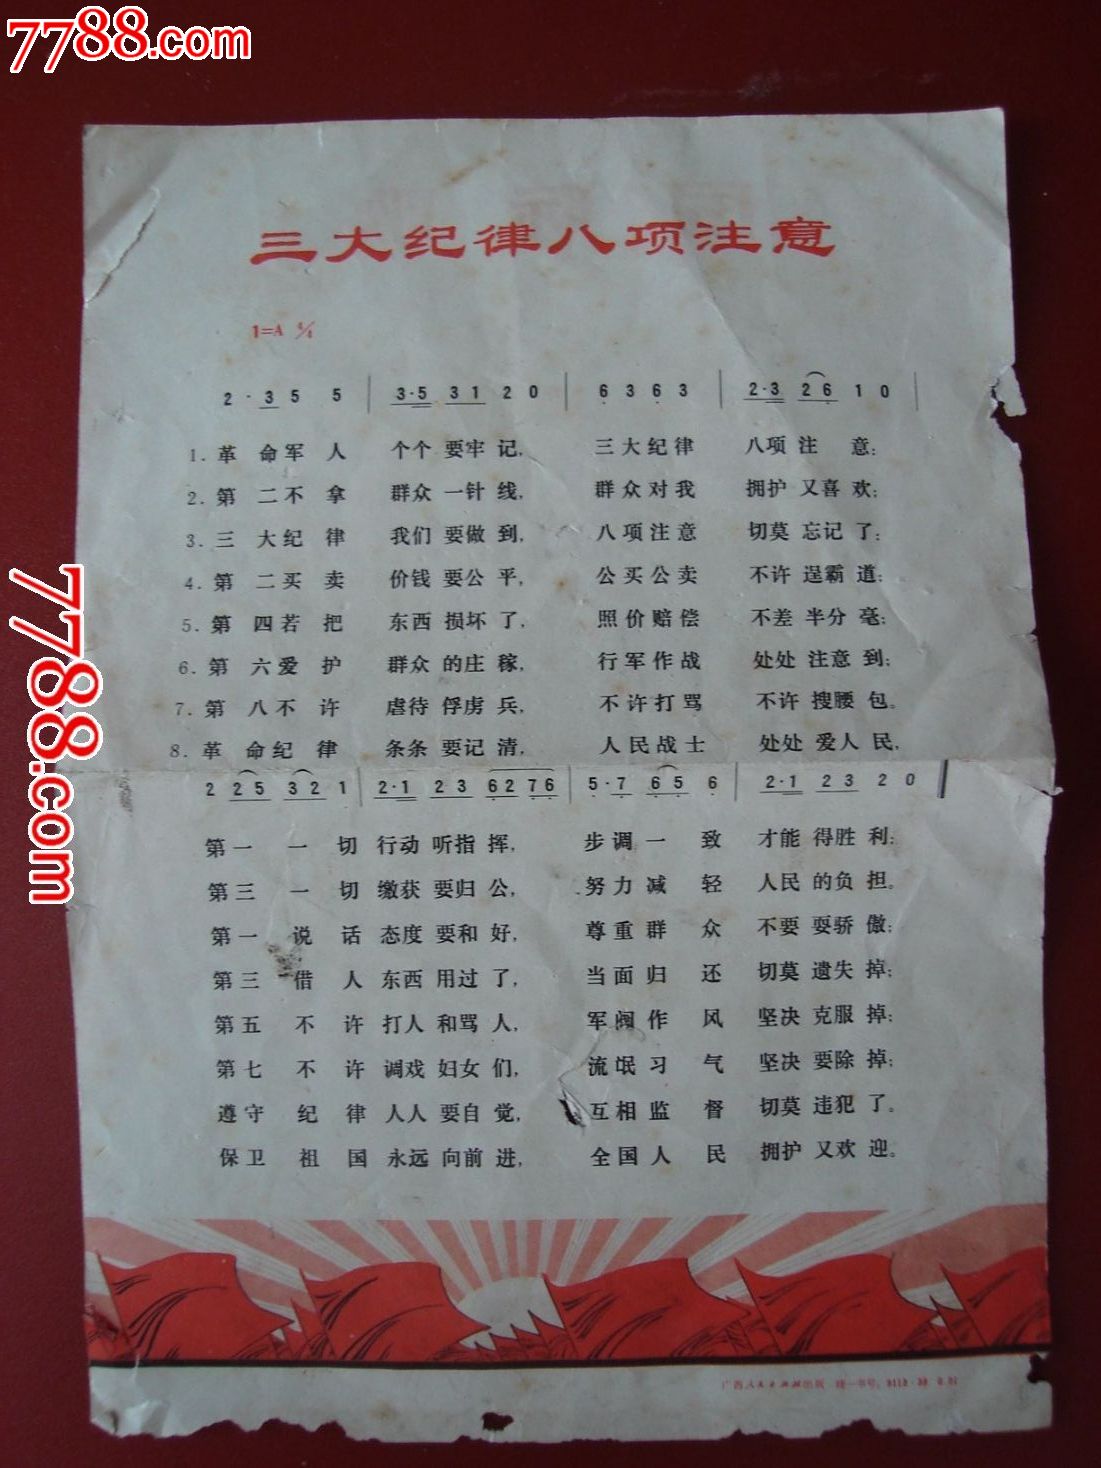 7788.com
三大纪律八项注意
1=A 4/4
2·3 5 5 | 3·5 3 1 2 0 | 6 3 6 3 | 2·3 2 6 1 0 |
1. 革命军人 个个要牢记, 三大纪律 八项注意;
2. 第二不拿 群众一针线, 群众对我 拥护又喜欢;
3. 三大纪律 我们要做到, 八项注意 切莫忘记了;
4. 第二买卖 价钱要公平, 公买公卖 不许逞霸道;
5. 第四若把 东西损坏了, 照价赔偿 不差半分毫;
6. 第六爱护 群众的庄稼, 行军作战 处处注意到;
7. 第八不许 虐待俘虏兵, 不许打骂 不许搜腰包。
8. 革命纪律 条条要记清, 人民战士 处处爱人民,
2 2 5 3 2 1 | 2·1 2 3 6 2 7 6 | 5·7 6 5 6 | 2·1 2 3 2 0
第一一切 行动听指挥, 步调一致 才能得胜利;
第三一切 缴获要归公, 努力减轻 人民的负担。
第一说话 态度要和好, 尊重群众 不要耍骄傲;
第三借人 东西用过了, 当面归还 切莫遗失掉;
第五不许 打人和骂人, 军阀作风 坚决克服掉;
第七不许 调戏妇女们, 流氓习气 坚决要除掉;
遵守纪律 人人要自觉, 互相监督 切莫违犯了。
保卫祖国 永远向前进, 全国人民 拥护又欢迎。
广西人民出版社出版 统一书号:
7788.com